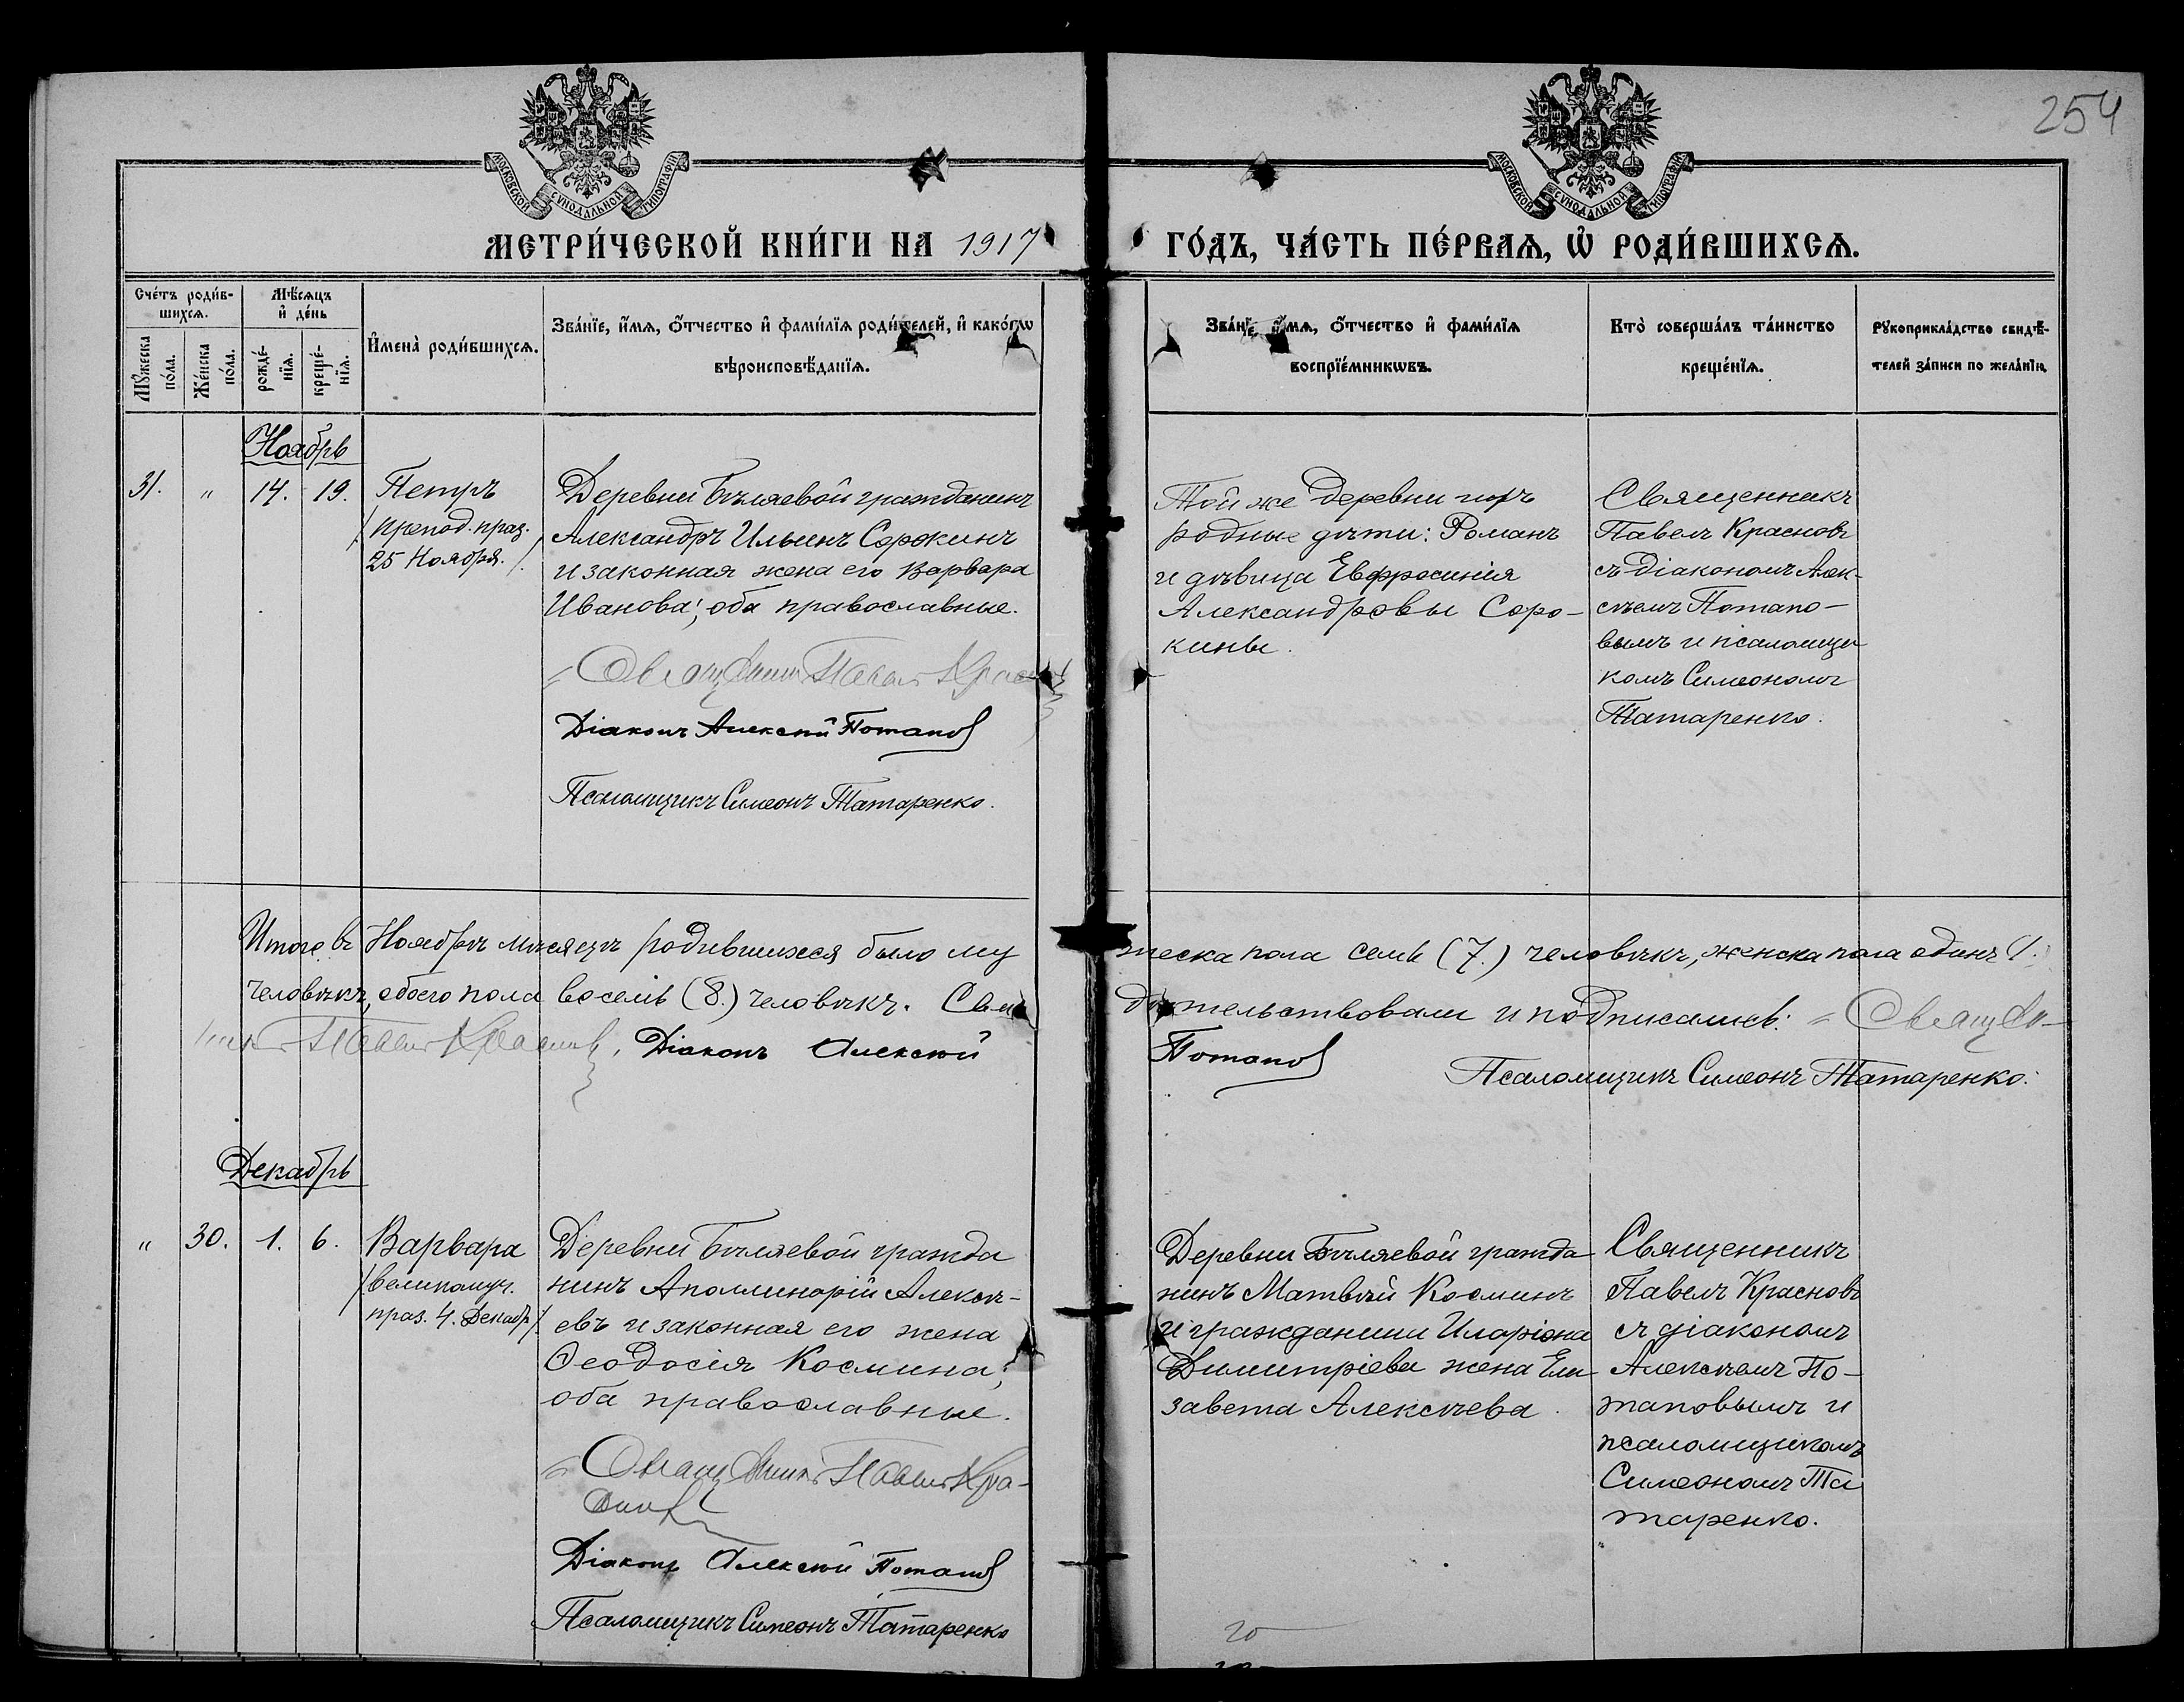 254
МОСКОВСКОЙ СѴНОДАЛЬНОЙ ТИПОГРАФІИ
МОСКОВСКОЙ СѴНОДАЛЬНОЙ ТИПОГРАФІИ
МЕТРИ́ЧЕСКОЙ КНИ́ГИ НА 1917 ГО́ДЪ, ЧА́СТЬ ПЕ́РВАѦ, Ѡ҆ РОДИ́ВШИХСѦ.
Сче́тъ роди́в-
шихсѧ.
Мѣ́сѧцъ
и҆ де́нь
Мꙋ́жеска
по́ла.
Же́нска
по́ла.
рожде́-
нїѧ.
креще́-
нїѧ.
И҆мена̀ роди́вшихсѧ.
Зва́нїе, и҆́мѧ, ѻ҆́тчество и҆ фами́лїѧ роди́телей, и҆ како́гѡ
вѣроисповѣ́данїѧ.
Зва́нїе, и҆́мѧ, ѻ҆́тчество и҆ фами́лїѧ
воспрїе́мникѡвъ.
Кто̀ соверша́лъ та́инство
креще́нїѧ.
Рꙋкоприкла́дство свидѣ́-
телей за́писи по жела́нїю.
Ноябрь
31. " 14. 19.
Петръ
/препод. праз.
25 Ноября./
Деревни Бѣляевой гражданинъ
Александръ Ильинъ Сорокинъ
и законная жена его Варвара
Иванова; оба православные.
Священникъ Павелъ Красновъ
Діаконъ Алексѣй Потаповъ
Псаломщикъ Симеонъ Татаренко.
Той же деревни
родные дѣти: Романъ
и дѣвица Евфросинія
Александровы Соро-
кины.
Священникъ
Павелъ Красновъ
съ діакономъ Алек-
сѣемъ Потапо-
вымъ и псаломщи
комъ Симеономъ
Татаренко.
Итого въ Ноябрѣ мѣсяцѣ родившихся было му жеска пола семь (7.) человѣкъ, женска пола одинъ 1.
человѣкъ, обоего пола восемь (8.) человѣкъ. Сви дѣтельствовали и подписались: Священ-
никъ Павелъ Красновъ, Діаконъ Алексѣй Потаповъ
Псаломщикъ Симеонъ Татаренко.
Декабрь
" 30. 1. 6.
Варвара
/великомуч.
праз. 4. Декабр/.
Деревни Бѣляевой гражда
нинъ Аполлинарій Алексѣ-
евъ и законная его жена
Ѳеодосія Космина;
оба православные.
Священникъ Павелъ Кра-
сновъ
Діаконъ Алексѣй Потаповъ
Псаломщикъ Симеонъ Татаренко
Деревни Бѣляевой гражда
нинъ Матвѣй Косминъ
и гражданина Иларіона
Димитріева жена Ели
завета Алексѣева.
Священникъ
Павелъ Красновъ
съ діакономъ
Алексѣемъ По-
таповымъ и
псаломщикомъ
Симеономъ Та
таренко.
20